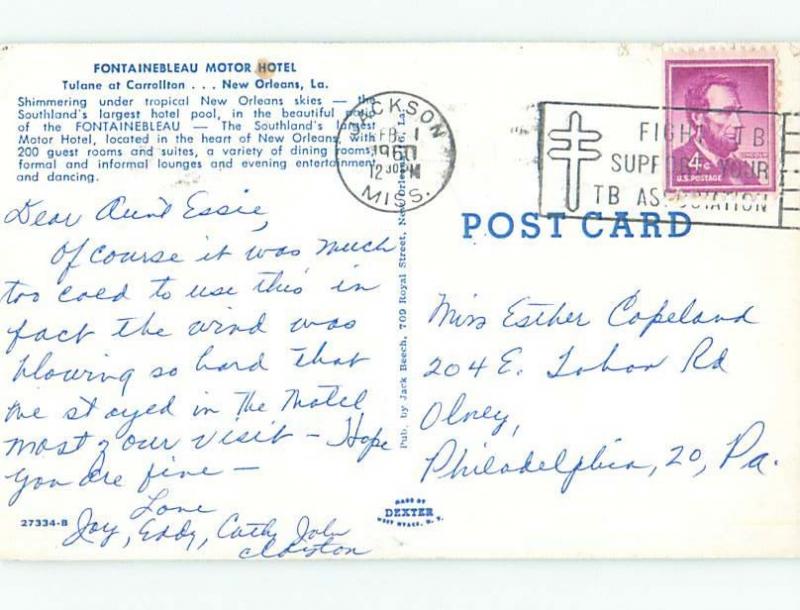 FONTAINEBLEAU MOTOR HOTEL
Tulane at Carrollton . . . New Orleans, La.
Shimmering under tropical New Orleans skies — the
Southland's largest hotel pool, in the beautiful patio
of the FONTAINEBLEAU — The Southland's largest
Motor Hotel, located in the heart of New Orleans, with
200 guest rooms and suites, a variety of dining rooms,
formal and informal lounges and evening entertainment
and dancing.
JACKSON
FEB 1
1960
12 30 PM
MISS.
FIGHT TB
SUPPORT YOUR
TB ASSOCIATION
4c
U.S. POSTAGE
POST CARD
Dear Aunt Essie,
Of course it was much
too cold to use this in
fact the wind was
blowing so hard that
we stayed in the Motel
most of our visit — Hope
you are fine —
Love
Joy, Eddy, Cathy John
Pub. by Jack Beech, 709 Royal Street, New Orleans, La.
Miss Esther Copeland
204 E. Tabor Rd
Olney,
Philadelphia, 20, Pa.
MADE BY
DEXTER
WEST NYACK, N. Y.
27334-B